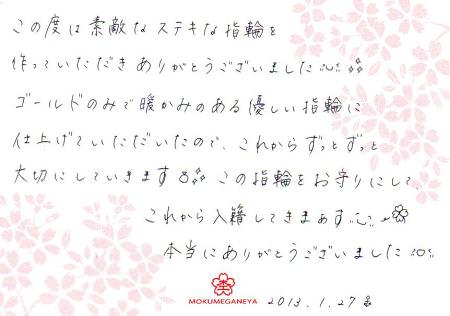 この度は素敵なステキな指輪を
作っていただきありがとうございました
ゴールドのみで暖かみのある優しい指輪に
仕上げていただいたので、これからずっとずっと
大切にしていきます この指輪をお守りにして、
これから入籍してきまぁす
本当にありがとうございました
MOKUMEGANEYA
2013.1.27